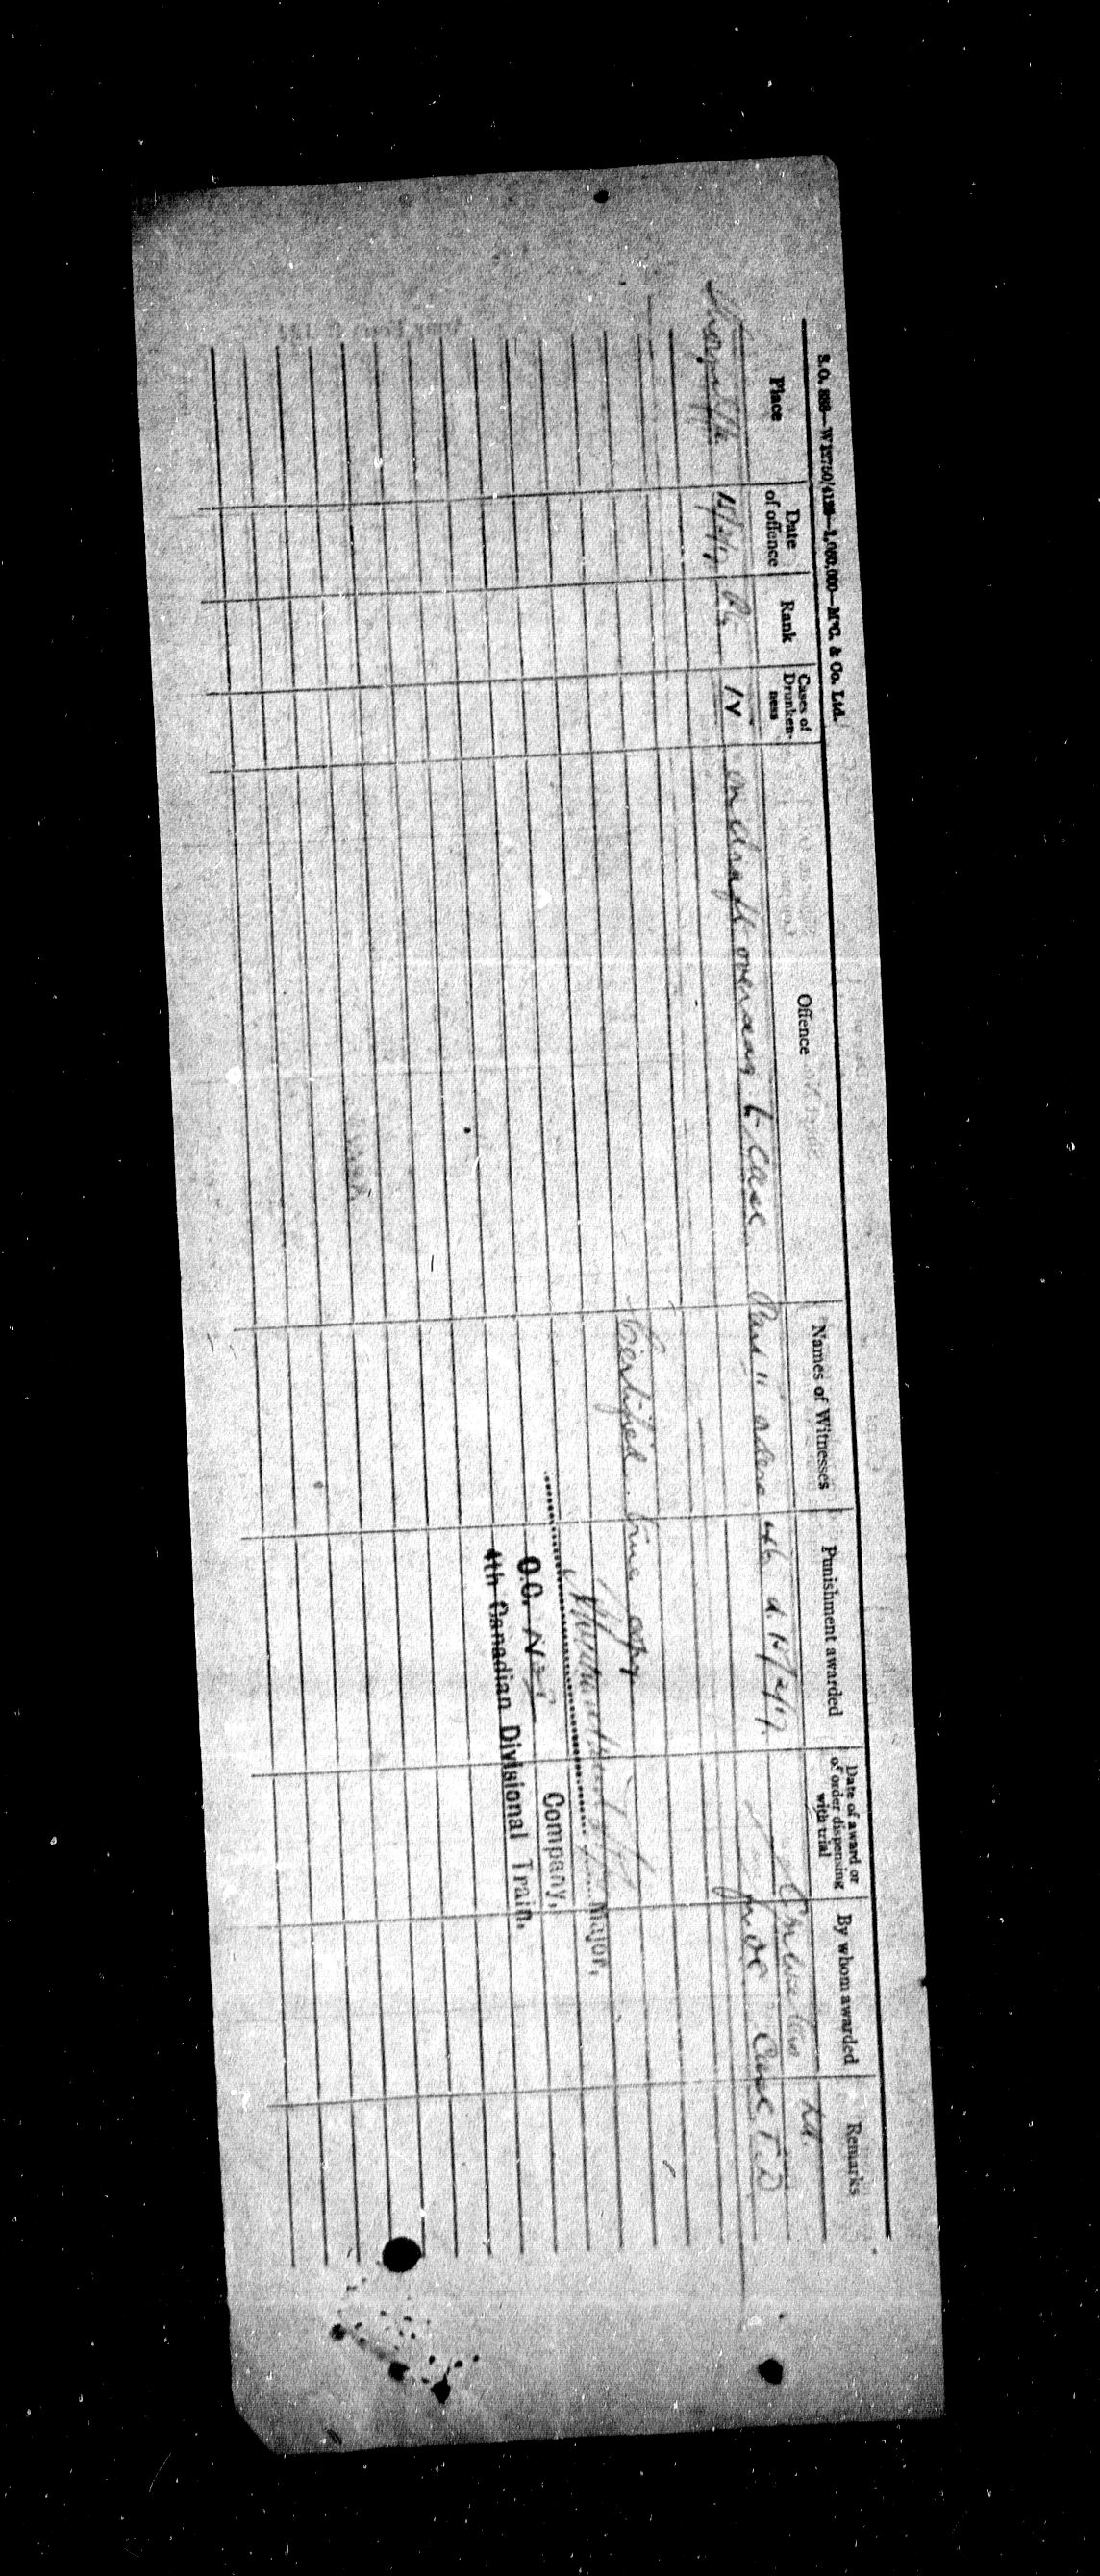 S.O. 888—W12750/4188—1,000,000—McC. & Co. Ltd.
Place Date of offence Rank Cases of Drunkenness Offence Names of Witnesses Punishment awarded Date of award or of order dispensing with trial By whom awarded Remarks
Lt.
14/2/17 on draft overseas to CASC. Part II orders 46 d. 14/2/17. for OC CASC. T.D
Certified true copy
Major,
O.C. No Company,
4th Canadian Divisional Train.